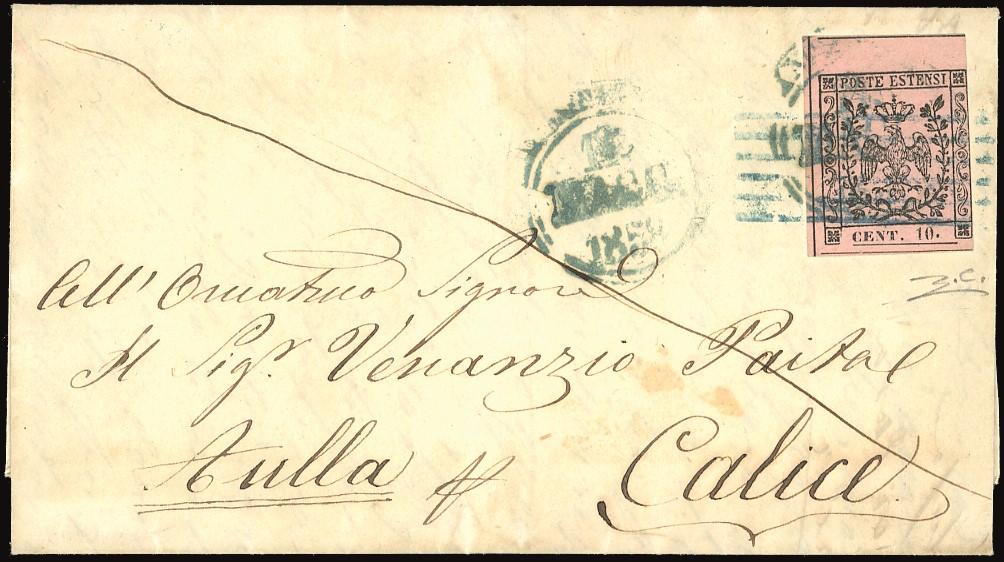 POSTE ESTENSI
CENT. 10.
All' Ornatmo Signore
Il Sigr Venanzio Paita
Aulla Calice